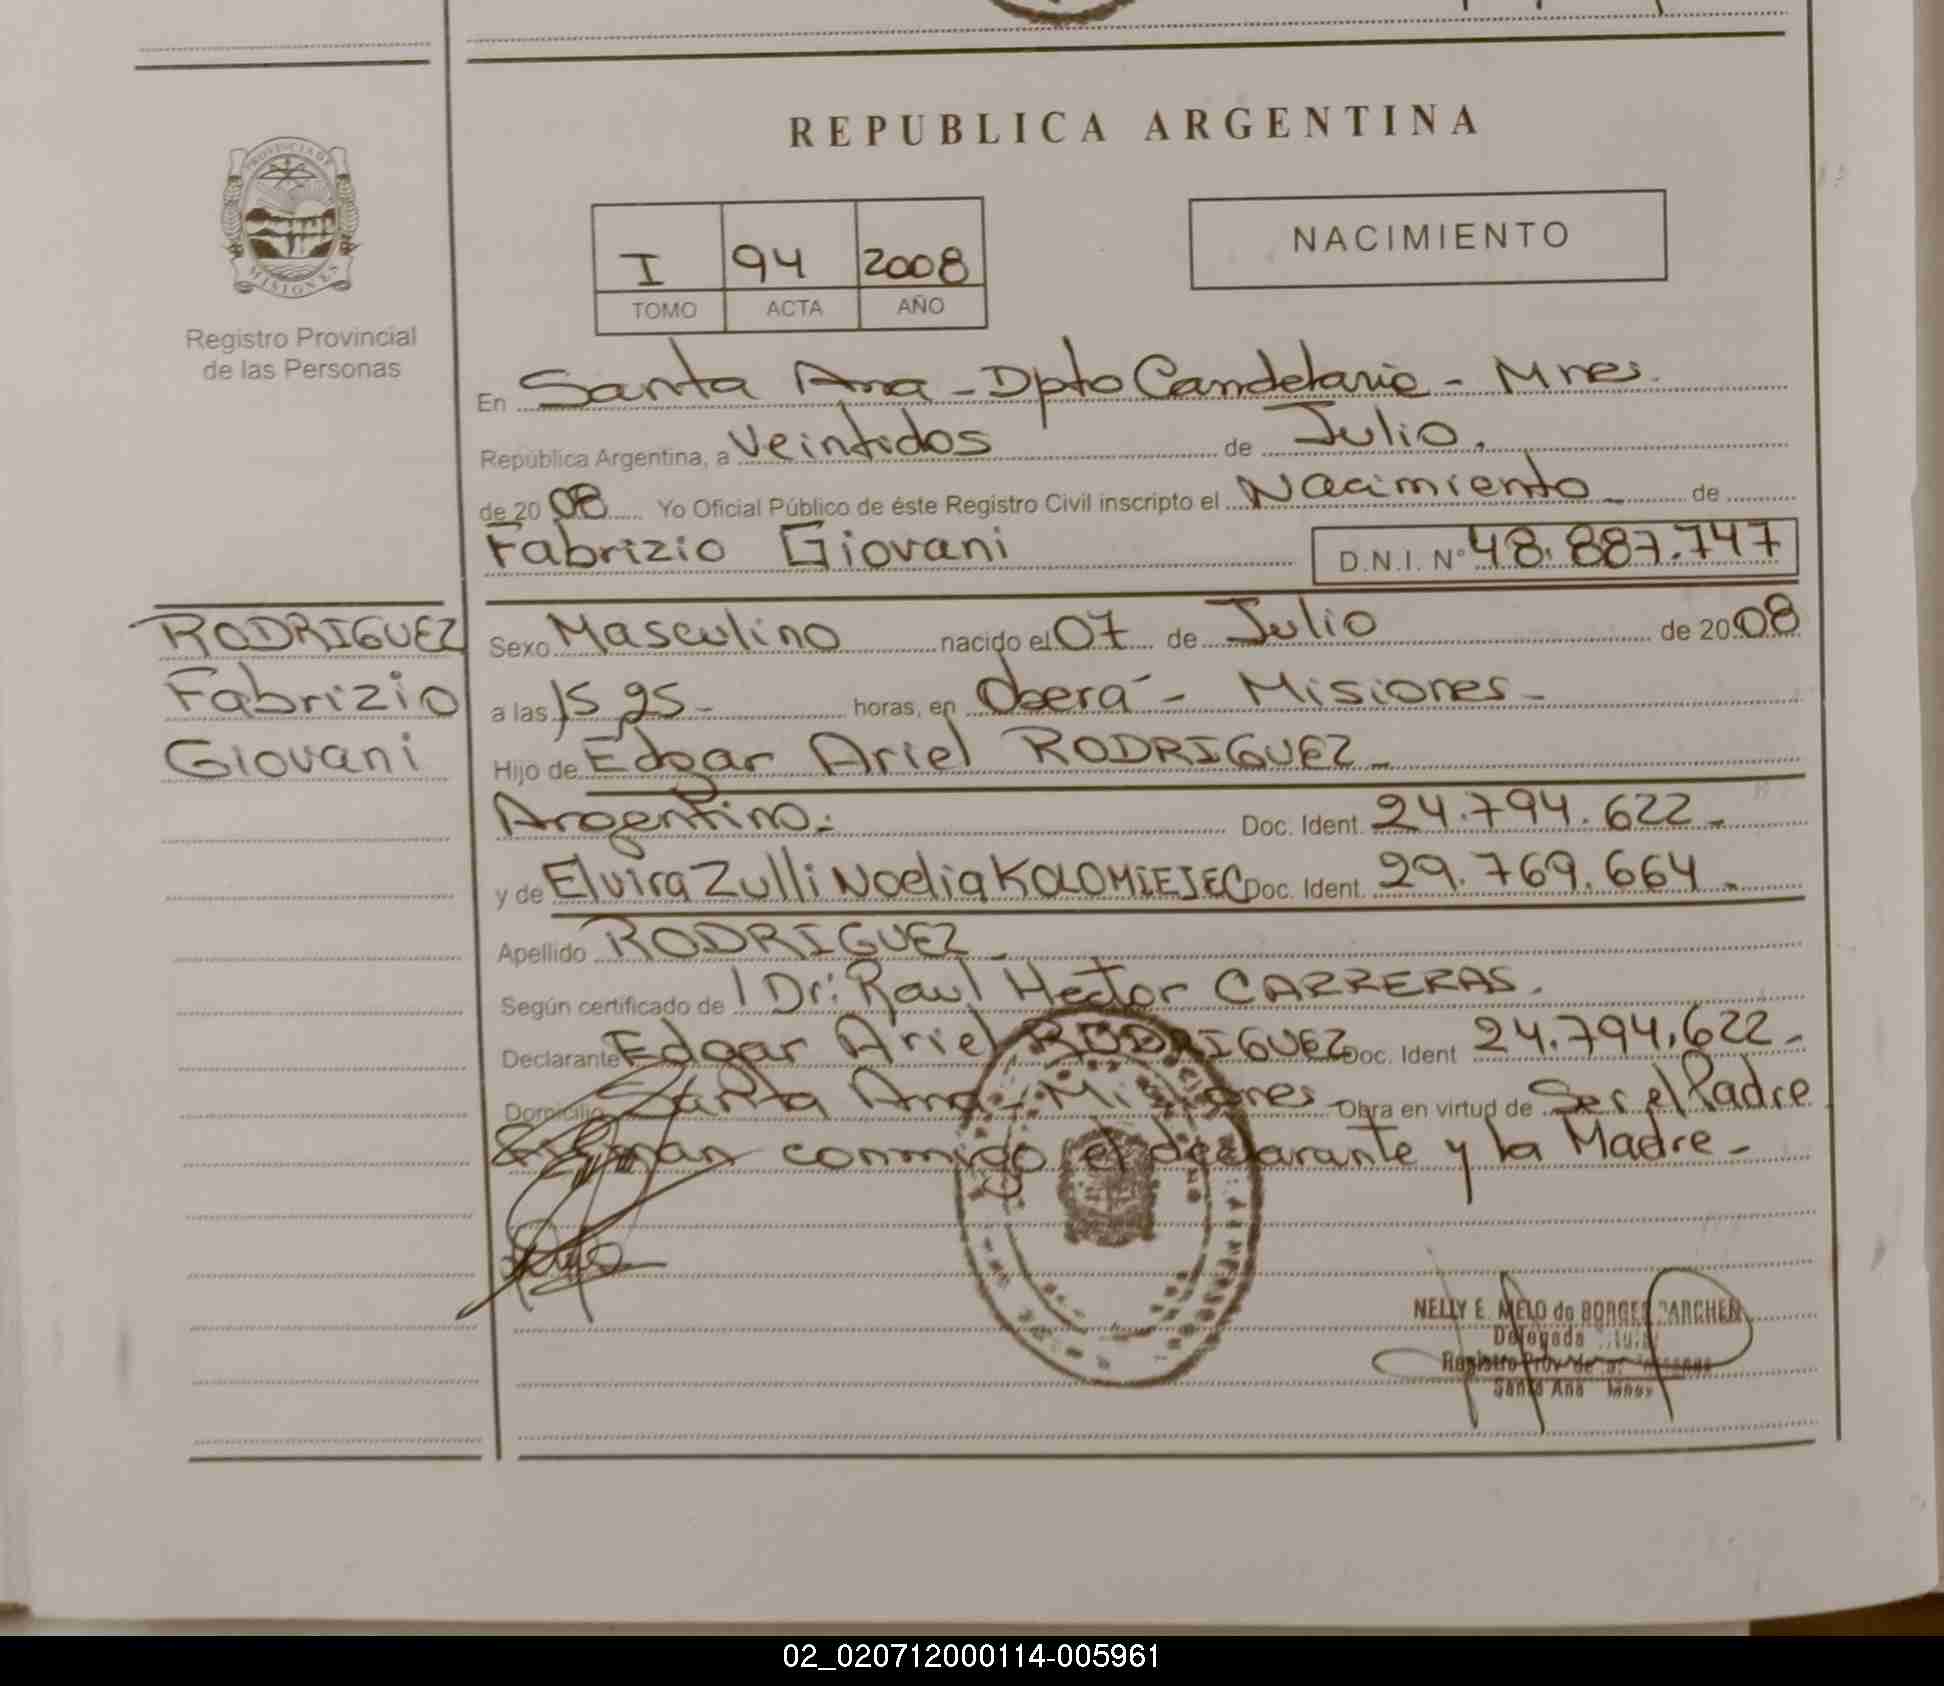 REPUBLICA ARGENTINA
PROVINCIA DE
MISIONES
Registro Provincial
de las Personas
I 94 2008
TOMO ACTA AÑO
NACIMIENTO
En Santa Ana - Dpto Candelaria - Mnes.
República Argentina, a Veintidos de Julio.
de 2008 Yo Oficial Público de éste Registro Civil inscripto el Nacimiento de
Fabrizio Giovani D.N.I. Nº 48.887.747
RODRIGUEZ
Fabrizio
Giovani
Sexo Masculino nacido el 07 de Julio de 2008
a las 15 25 - horas, en Oberá - Misiones -
Hijo de Edgar Ariel RODRIGUEZ -
Argentino. Doc. Ident. 24.794.622 -
y de Elvira Zulli Noelia KOLOMIEJEC Doc. Ident. 29.769.664 -
Apellido RODRIGUEZ -
Según certificado de Dr: Raul Hector CARRERAS.
Declarante Edgar Ariel RODRIGUEZ Doc. Ident 24.794.622 -
Domicilio Santa Ana - Misiones - Obra en virtud de Ser el Padre
Firman conmigo el declarante y la Madre -
NELLY E. MELO de BORGES
Delegada
Registro Prov. de
Santa Ana
02_020712000114-005961